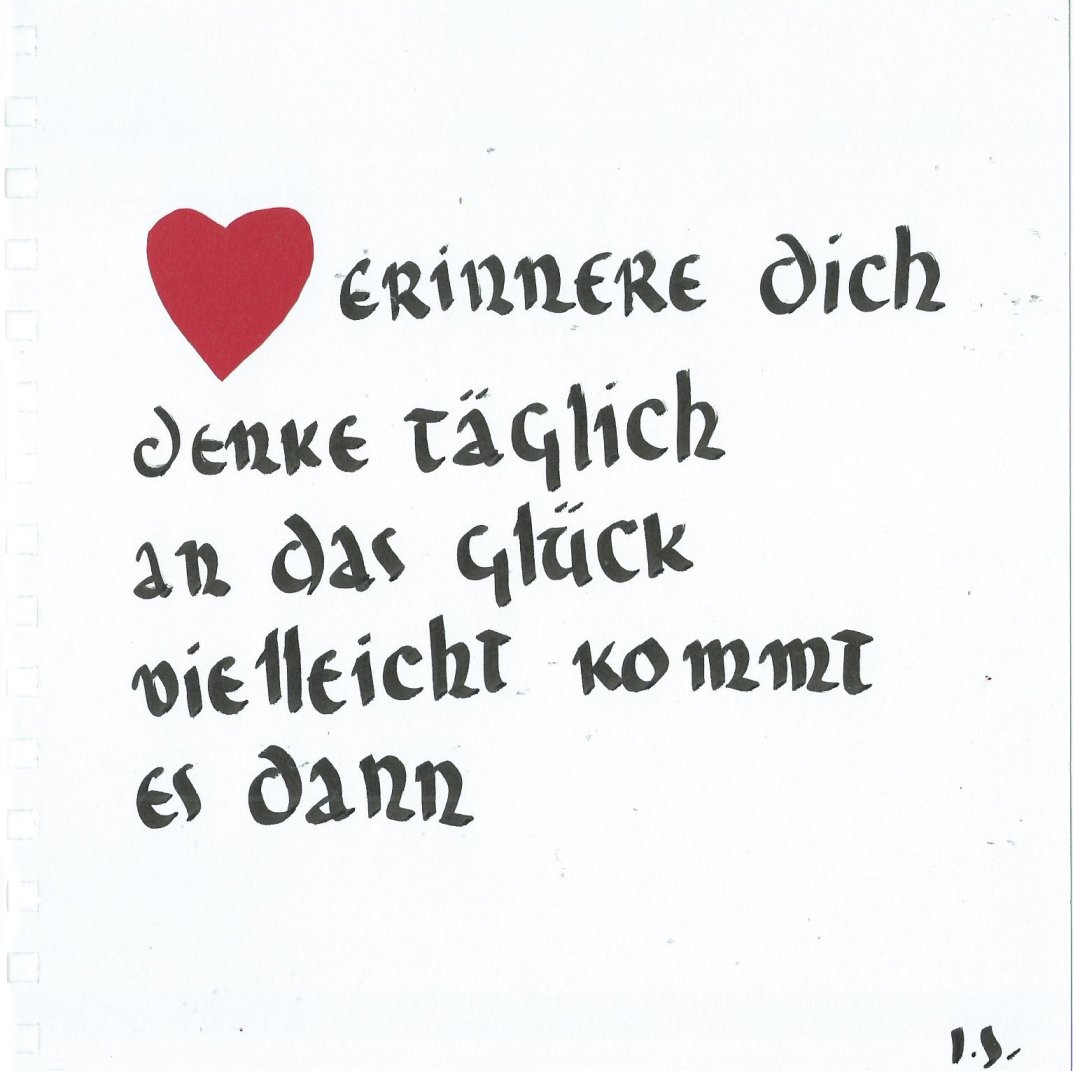 erinnere dich
denke täglich
an das Glück
vielleicht kommt
es dann
I.S.